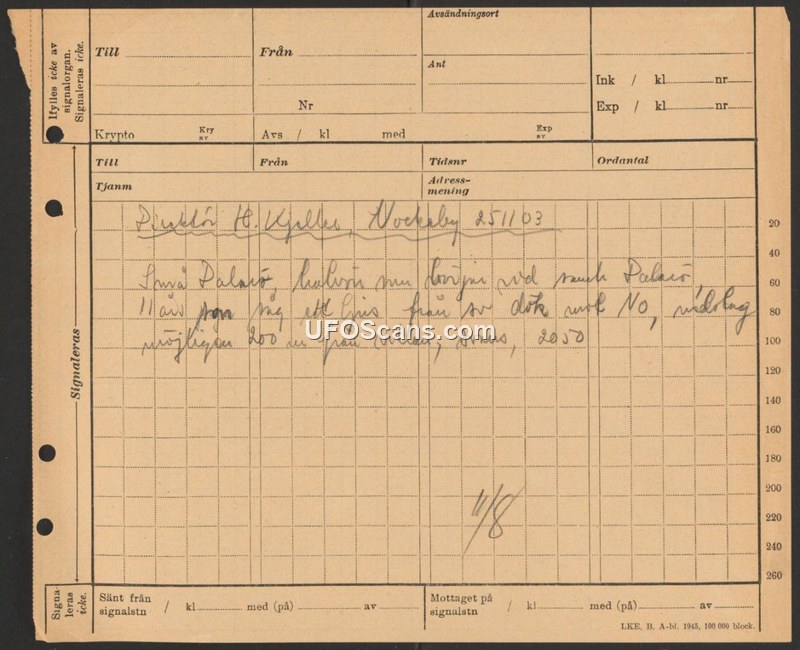 Ifylles icke av
signalorgan.
Signaleras icke.
Till
Från
Nr
Avsändningsort
Ant
Ink / kl nr
Exp / kl nr
Krypto
Kry
av
Avs / kl med
Exp
av
Till
Från
Tidsnr
Ordantal
Tjanm
Adress-
mening
H. Nockeby 251103
Små Dalarö, vid Dalarö
11 såg ett ljus från sv mot NO,
möjligen 200 m från 2050
UFOScans.com
11/8
Signaleras
20
40
60
80
100
120
140
160
180
200
220
240
260
Signa-
leras
icke.
Sänt från
signalstn / kl med (på) av
Mottaget på
signalstn / kl med (på) av
LKE. B. A-bl. 1945, 100 000 block.